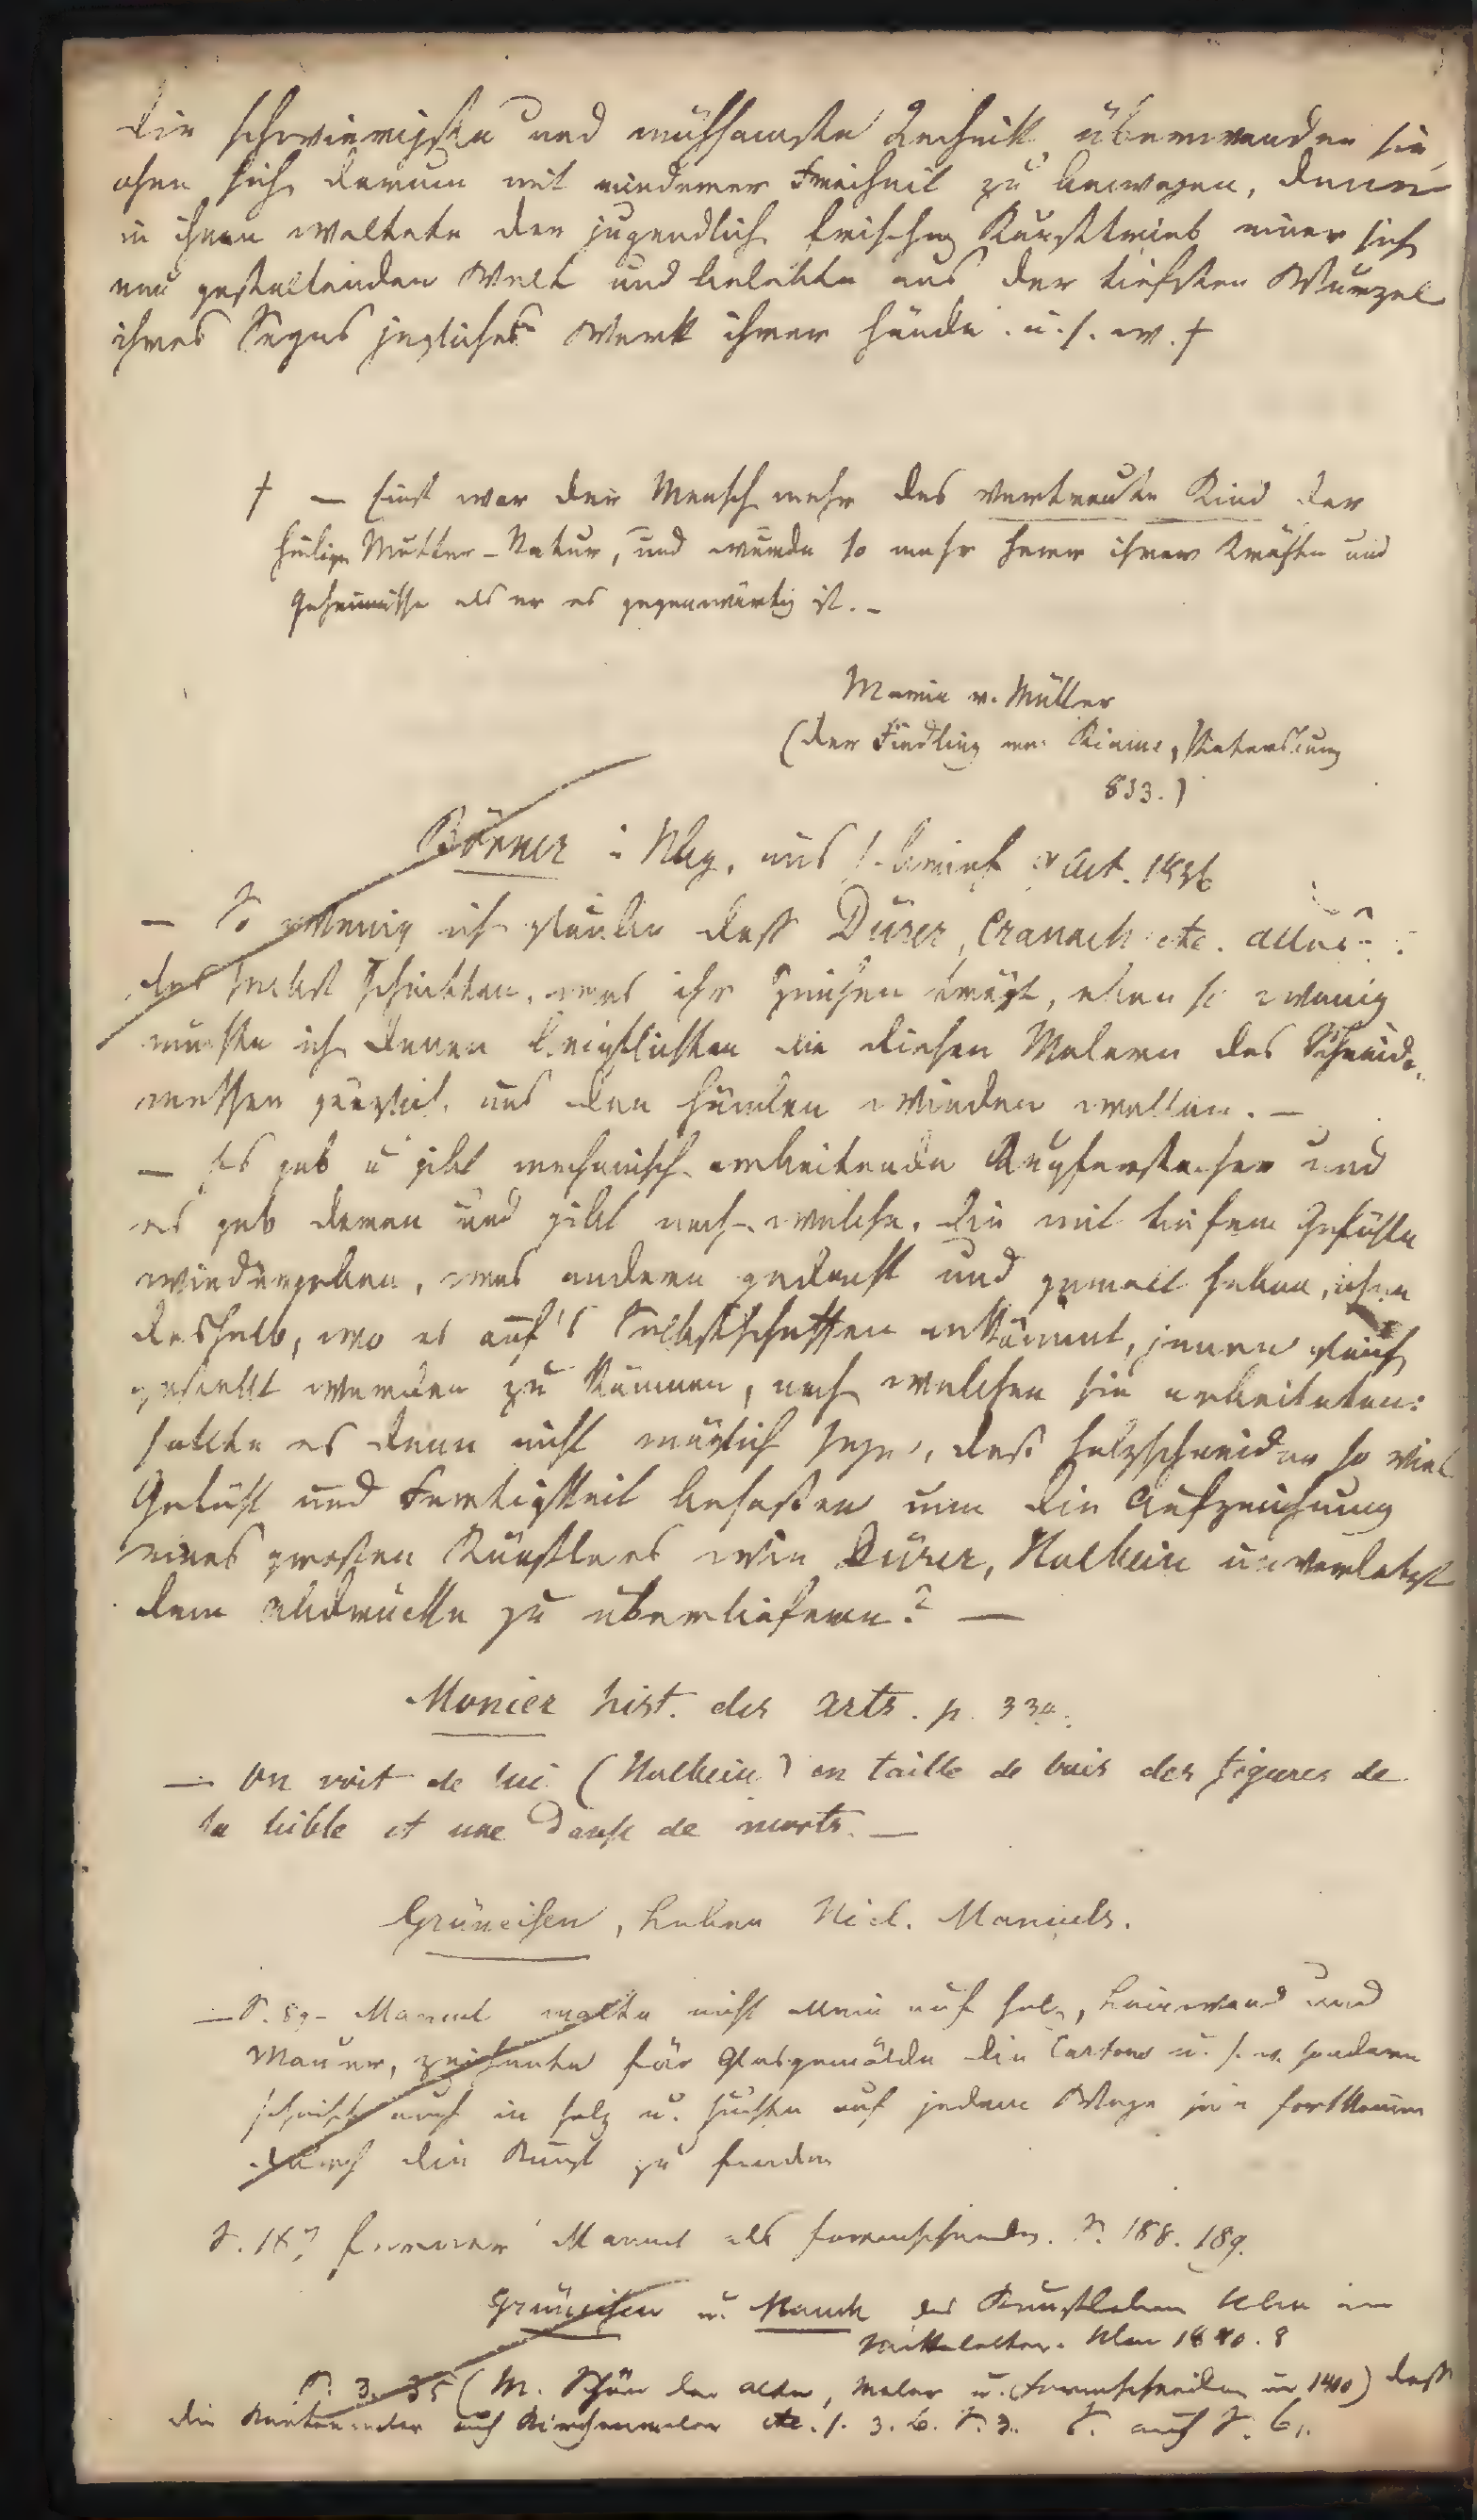 die schwierigsten und mühsamste Technik überwanden sie,
ohne sich darum mit minderer Freiheit zu bewegen, denn
in ihnen waltete der jugendlich frische Kunsttrieb einer sich
neu gestaltenden Welt und belebte aus der tiefsten Wurzel
ihres Seyns jegliches Werk ihrer Hände. u. s. w. †
† — Einst war der Mensch mehr das vertraute Kind der
heiligen Mutter-Natur, und wurde so mehr Herr ihrer Kräfte und
Geheimnisse als er es gegenwärtig ist. –
Maria v. Müller
(der Findling
833.)
Börner i. Nbg. aus s. Brief Oct. 1836
— So wenig ich glaube daß Dürer, Cranach etc. alles
das selbst schnitten, was ihr Zeichen trägt, eben so wenig
möchte ich denen beipflichten die diesen Malern das Schneide-
messer gänzlich aus den Händen winden wollen. —
— Es gab u gibt mechanisch arbeitende Kupferstecher und
es gab deren und gibt noch welche, die mit tiefem Gefühle
wiedergeben, was andere gedacht und gemalt haben, ohne
deshalb, wo es auf's Selbstschaffen ankommt, jenen gleich
gestellt werden zu können, nach welchen sie arbeiteten:
sollte es denn nicht möglich seyn, daß Holzschneider so viel
Gefühl und Fertigkeit besaßen um die Aufzeichnung
eines großen Künstlers wie Dürer, Holbein unverletzt
dem Abdrucke zu überliefern? —
Monier hist. des arts. p.
— on voit de lui (Holbein) en taille de bois des figures de
la bible et une Danse de morts. —
Grüneisen, Leben Nicl. Manuels.
— S. 89 – Manuel malte nicht allein auf Holz, Leinwand und
Mauer, zeichnete für Glasgemälde die Cartons u. s. w. sondern
schnitt auch in Holz u. suchte auf jedem Wege sein Fortkommen
durch die Kunst zu finden
S. 187 ferner Manuel als Formschneider. S. 188. 189.
Grüneisen u. Mauch das Kunstleben Ulm im
Mittelalter. Ulm 1840. 8
S. 3. 35 (M. Schön der alte, Maler u. Formschneider um 1400) daß
die Kartenmaler auch Kirchenmaler etc. s. z. b. S. 3. S. auch S.